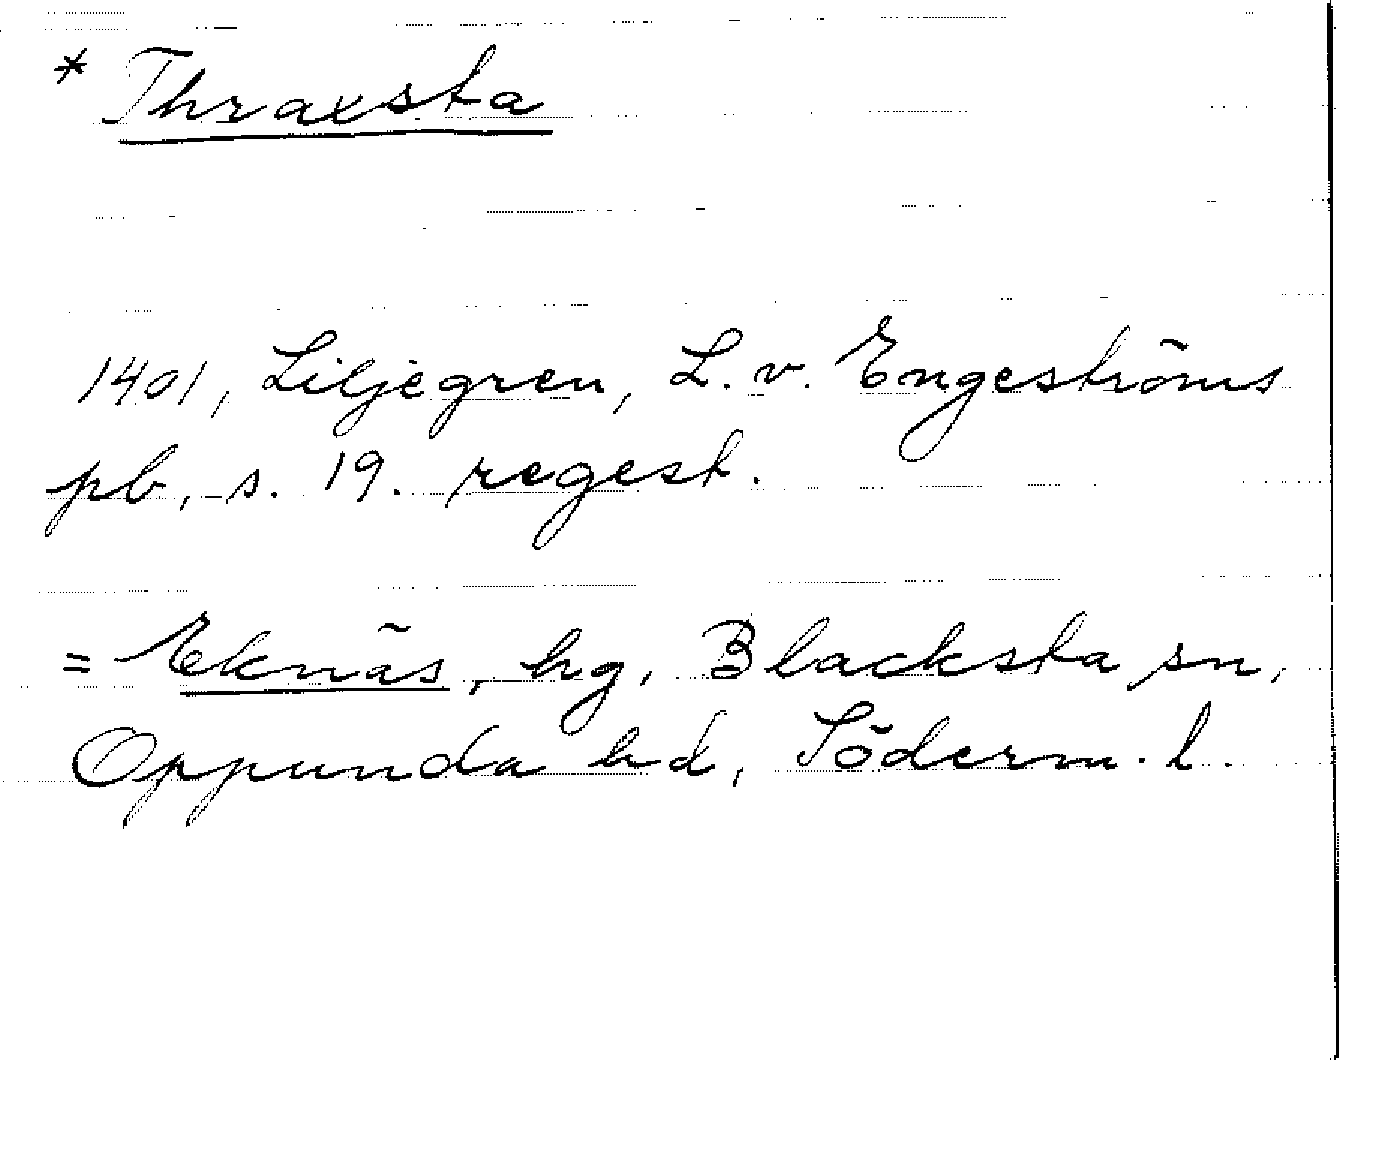 * Thraxsta
1401, Liljegren, L. v. Engeströms
pb, s. 19. regest.
= Eknäs, hg, Blacksta sn,
Oppunda hd, Söderm. l.